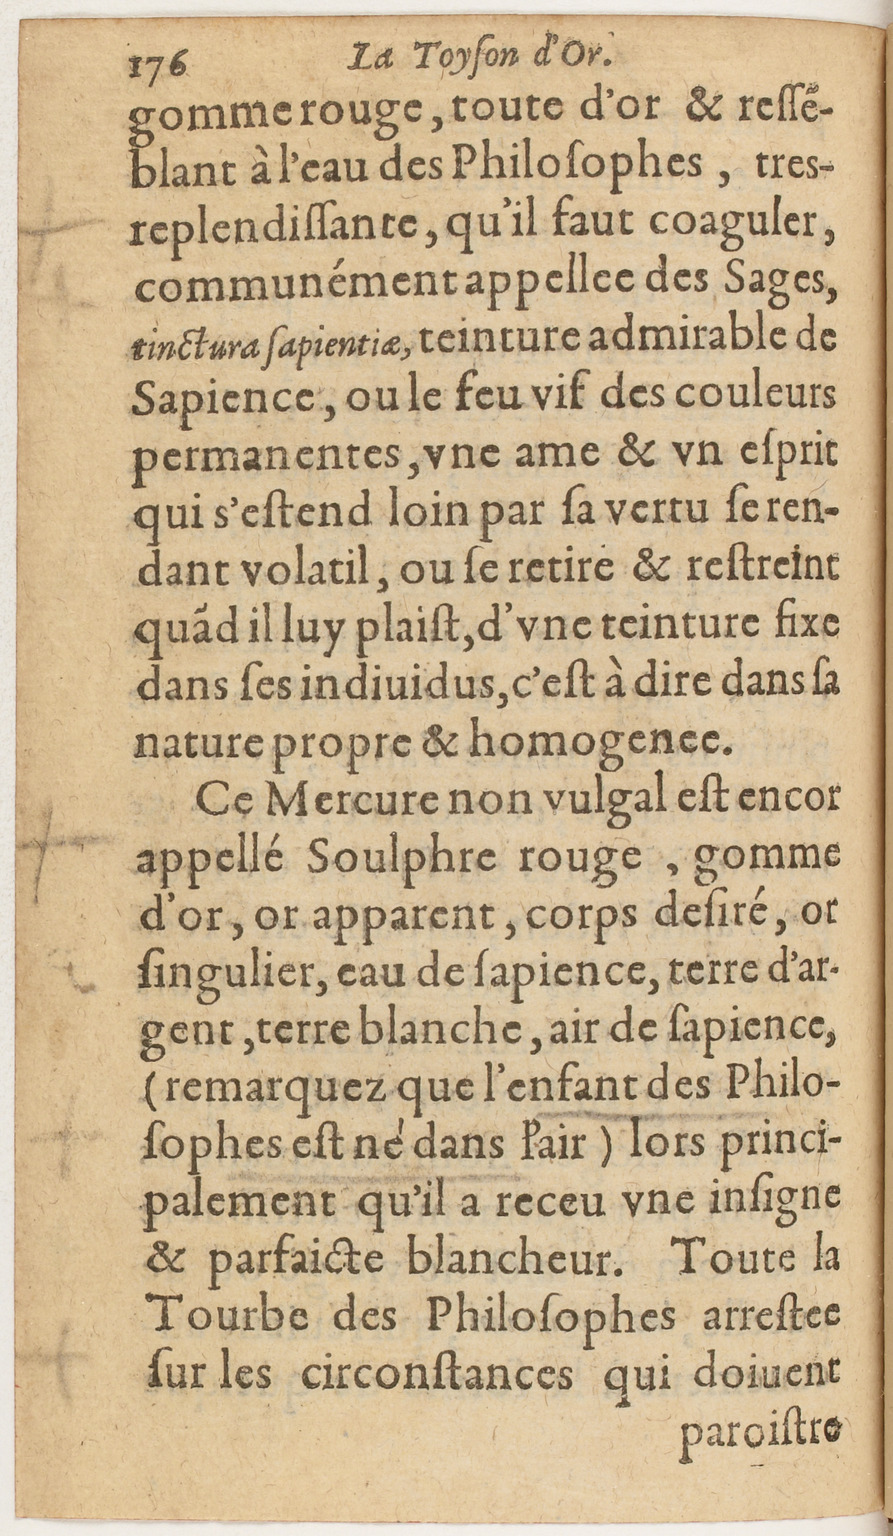 176 La Toyſon d'Or.
gomme rouge, toute d'or & reſſẽ-
blant à l'eau des Philoſophes , tres-
replendiſſante, qu'il faut coaguler,
communément appellee des Sages,
tinctura ſapientiæ, teinture admirable de
Sapience, ou le feu vif des couleurs
permanentes, vne ame & vn eſprit
qui s'eſtend loin par ſa vertu ſe ren-
dant volatil, ou ſe retire & reſtreint
quãd il luy plaiſt, d'vne teinture fixe
dans ſes indiuidus, c'eſt à dire dans ſa
nature propre & homogenee.
Ce Mercure non vulgal eſt encor
appellé Soulphre rouge , gomme
d'or, or apparent, corps deſiré, or
ſingulier, eau de ſapience, terre d'ar-
gent, terre blanche, air de ſapience,
(remarquez que l'enfant des Philo-
ſophes eſt né dans l'air ) lors princi-
palement qu'il a receu vne inſigne
& parfaicte blancheur. Toute la
Tourbe des Philoſophes arreſtee
ſur les circonſtances qui doiuent
paroiſtre